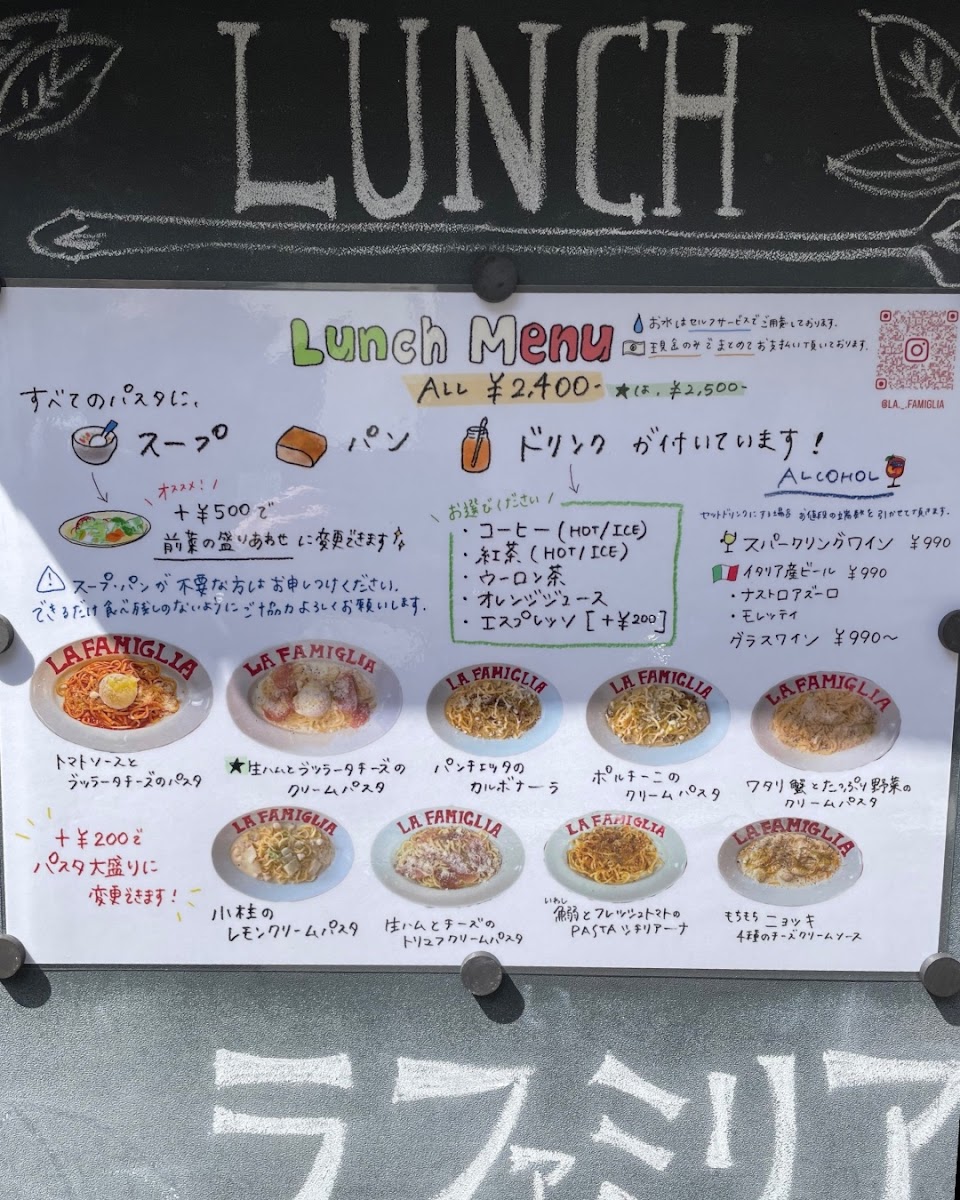 LUNCH
Lunch Menu
お水はセルフサービスでご用意しております。
現金のみでまとめてお支払い頂いております。
ALL ¥2,400-
★は、¥2,500-
@LA._.FAMIGLIA
すべてのパスタに、
スープ パン ドリンク が付いています!
オススメ!
+¥500で
前菜の盛りあわせ に変更できます
スープ・パンが不要な方はお申しつけください。
できるだけ食べ残しのないようにご協力よろしくお願いします。
お選びください
・コーヒー (HOT/ICE)
・紅茶 (HOT/ICE)
・ウーロン茶
・オレンジジュース
・エスプレッソ [+¥200]
ALCOHOL
セットドリンクにする場合 お値段の半額を引かせて頂きます。
スパークリングワイン ¥990
イタリア産ビール ¥990
・ナストロアズーロ
・モレッティ
グラスワイン ¥990~
LA FAMIGLIA
LA FAMIGLIA
LA FAMIGLIA
LA FAMIGLIA
LA FAMIGLIA
トマトソースと
ブッラータチーズのパスタ
★生ハムとブッラータチーズの
クリームパスタ
パンチェッタの
カルボナーラ
ポルチーニの
クリームパスタ
ワタリ蟹とたっぷり野菜の
クリームパスタ
+¥200で
パスタ大盛りに
変更できます!
LA FAMIGLIA
LA FAMIGLIA
LA FAMIGLIA
LA FAMIGLIA
小柱の
レモンクリームパスタ
生ハムとチーズの
トリュフクリームパスタ
いわし
鰯とフレッシュトマトの
PASTA シチリアーナ
もちもち ニョッキ
4種のチーズクリームソース
ラファミリア